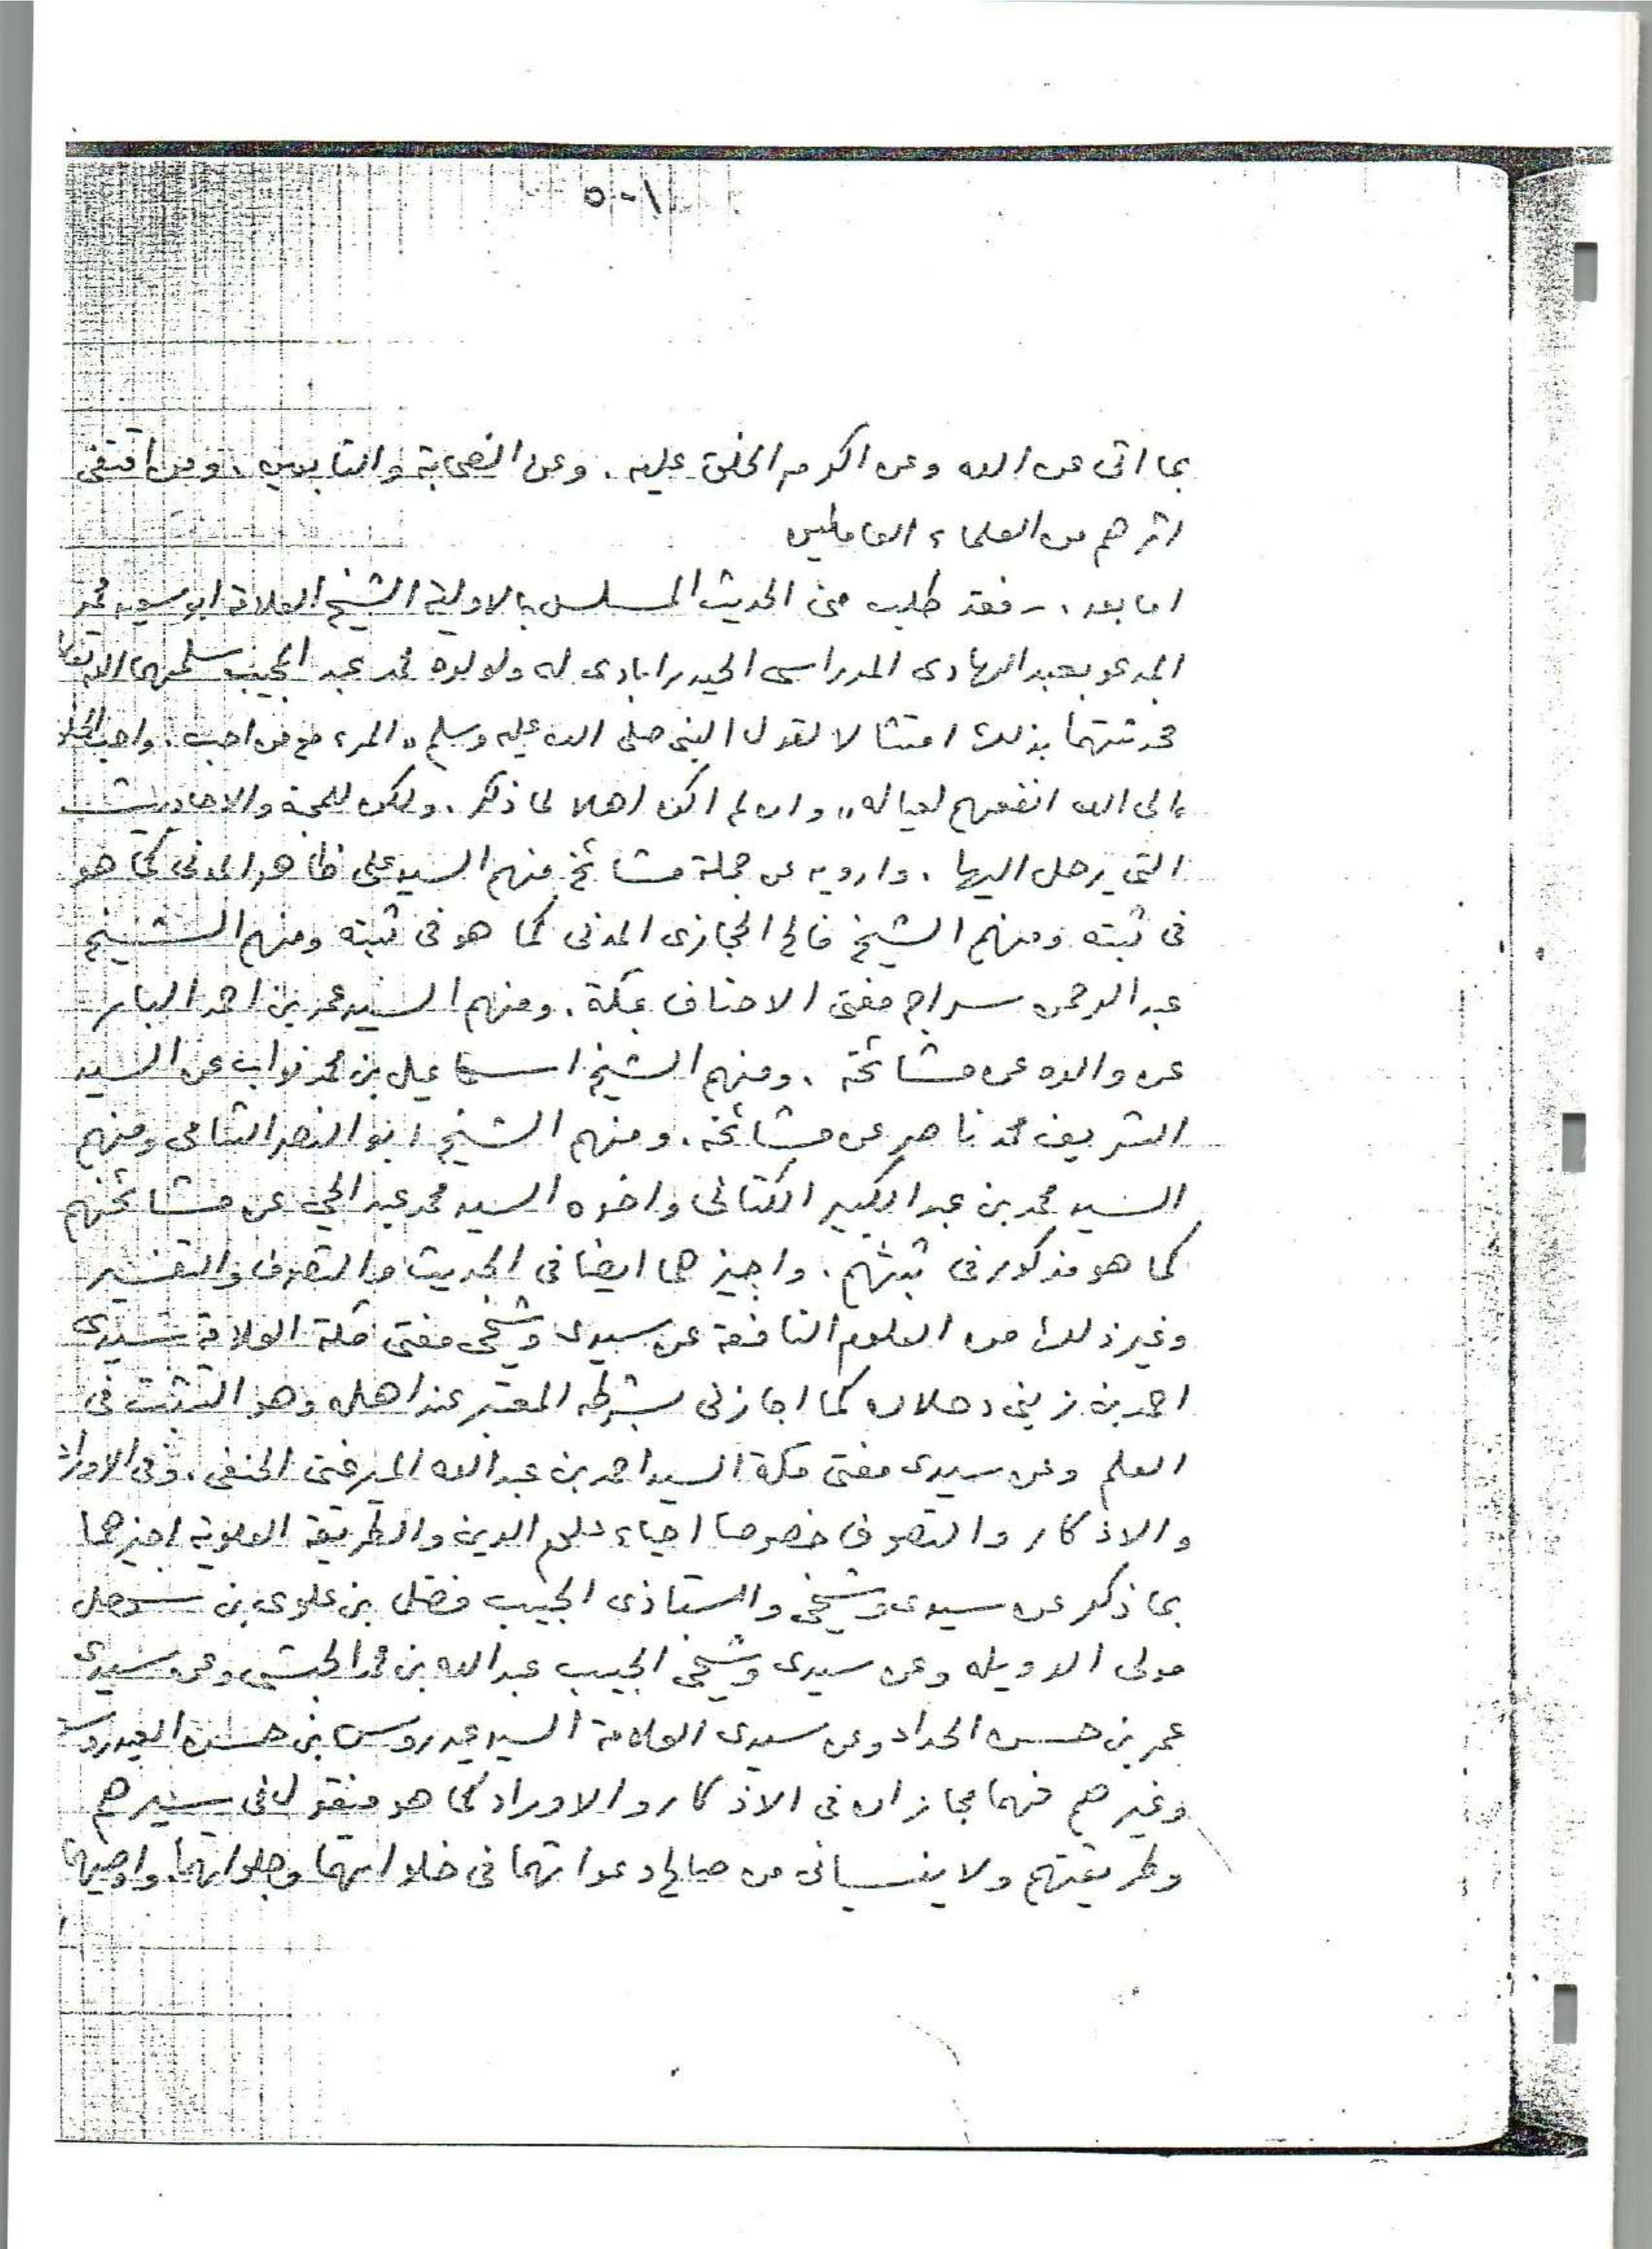 ٥-١
بما اتى عن الله وعن اكرم الخلق عليه . وعن الصحابة والتابعين . ومن اقتفى
اثرهم من العلماء العاملين
اما بعد . - فقد طلب منى الحديث المسلسل بالاولية الشيخ العلامة ابو سعيد محمد
المدعو بعبد الهادى المدراسى الحيدرابادى له ولولده محمد عبد المجيب سلمهما الله تعالى
فحدثتهما بذلك امتثالا لقول النبى صلى الله عليه وسلم „ المرء مع من احب . واحب الخلق
الى الله انفعهم لعياله „ وان لم اكن اهلا لما ذكر . ولكن للمحبة والاحاديث
التى يرحل اليها . وارويه عن جملة مشائخ منهم السيد على ظاهر المدنى كما هو
فى ثبته ومنهم الشيخ فالح الحجازى المدنى كما هو فى ثبته ومنهم الشيخ
عبد الرحمن سراج مفتى الاحناف بمكة . ومنهم السيد عمر بن احمد البار
عن والده عن مشائخه . ومنهم الشيخ اسماعيل بن محمد نواب عن السيد
الشريف محمد ناصر عن مشائخه . ومنهم الشيخ ابو النصر الشامى ومنهم
السيد محمد بن عبد الكبير الكتانى واخوه السيد محمد عبد الحى عن مشائخهم
كما هو مذكور فى ثبتهم . واجيزهما ايضا فى الحديث والتصوف والتفسير
وغير ذلك من العلوم النافعة عن سيدى وشيخى مفتى مكة العلامة سيدى
احمد بن زينى دحلان كما اجازنى بشرطه المعتبر عند اهله وهو التثبت فى
العلم وعن سيدى مفتى مكة السيد احمد بن عبد الله الميرغنى الحنفى . وفى الاوراد
والاذكار والتصوف خصوصا احياء علوم الدين والطريقة العلوية اجيزهما
بما ذكر عن سيدى وشيخى واستاذى الحبيب فضل بن علوى بن سهل
مولى الدويله وعن سيدى وشيخى الحبيب عبد الله بن محمد الحبشى وعن سيدى
عمر بن حسن الحداد وعن سيدى العلامة السيد عيدروس بن حسين العيدروس
وغيرهم فهما مجازان فى الاذكار والاوراد كما هو منقول فى سيرهم
وطريقتهم ولا ينسيانى من صالح دعواتهما فى خلواتهما وجلواتهما واوصيهما